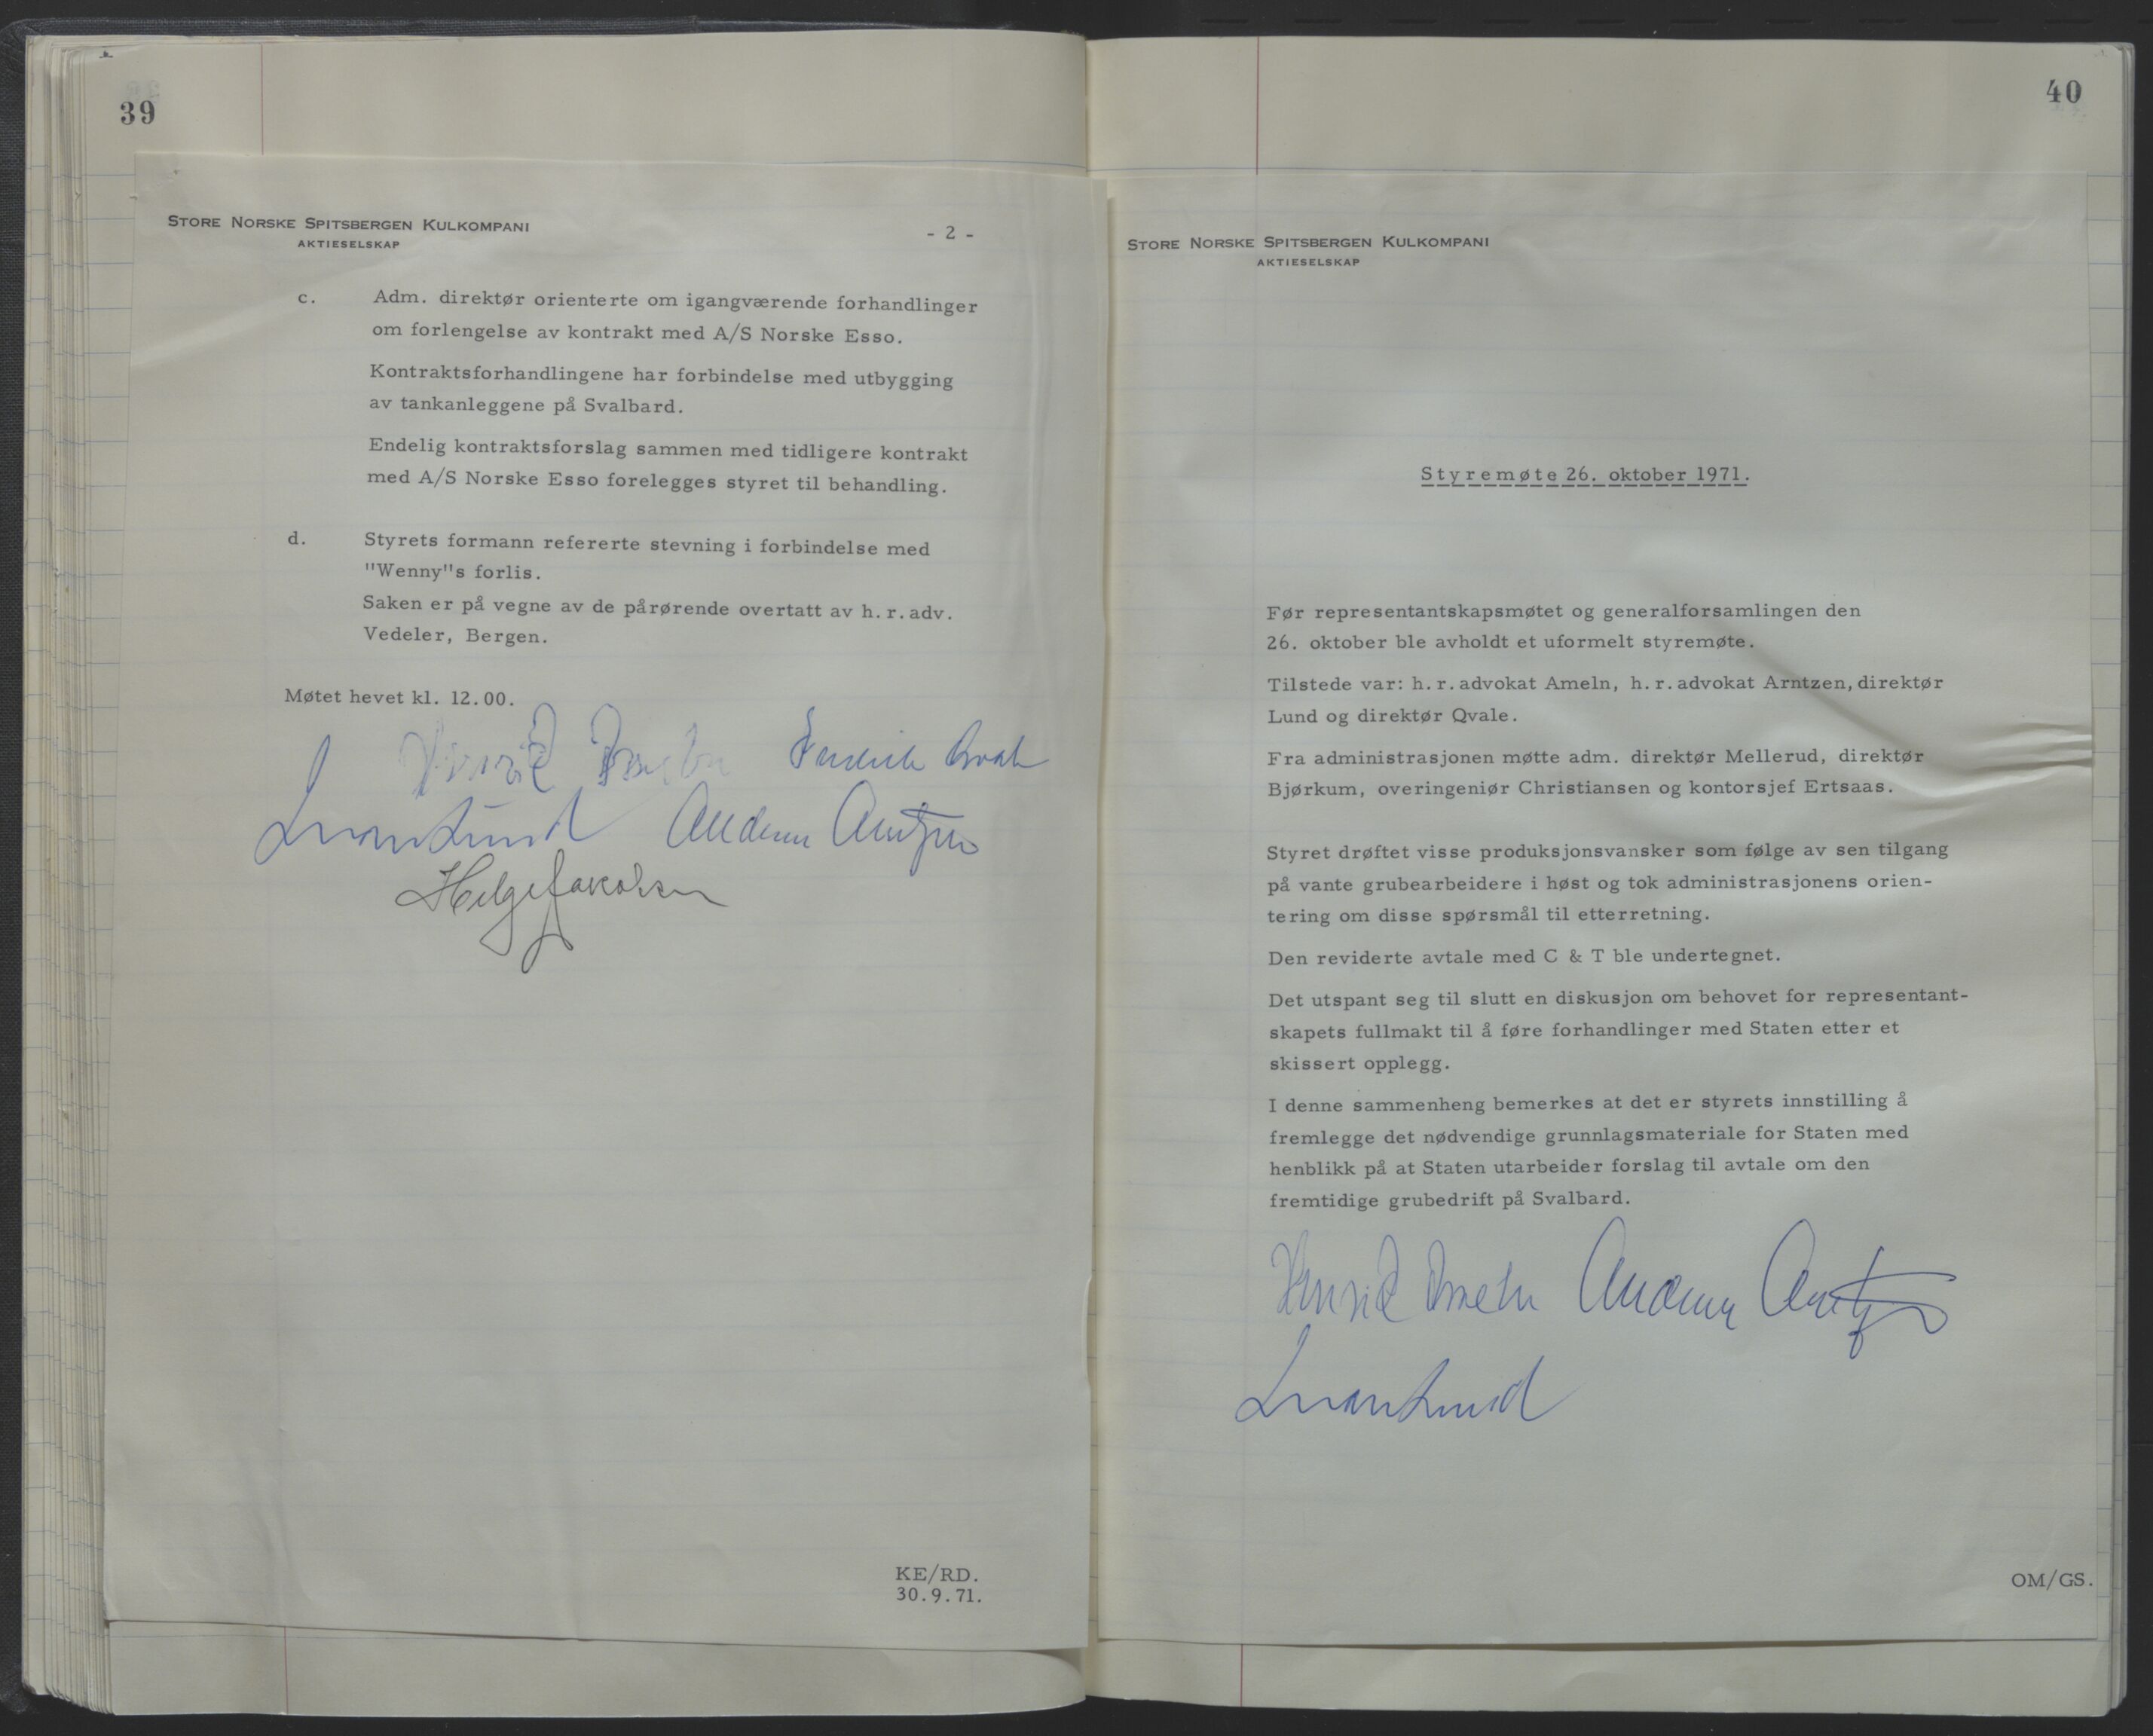 39
STORE NORSKE SPITSBERGEN KULKOMPANI
AKTIESELSKAP
- 2 -
c. Adm. direktør orienterte om igangværende forhandlinger
om forlengelse av kontrakt med A/S Norske Esso.
Kontraktsforhandlingene har forbindelse med utbygging
av tankanleggene på Svalbard.
Endelig kontraktsforslag sammen med tidligere kontrakt
med A/S Norske Esso forelegges styret til behandling.
d. Styrets formann refererte stevning i forbindelse med
"Wenny"s forlis.
Saken er på vegne av de pårørende overtatt av h.r.adv.
Vedeler, Bergen.
Møtet hevet kl. 12.00.
Henrik Ameln
Lund Anders Arntzen
Helge Jakobsen
KE/RD.
30.9.71.
40
STORE NORSKE SPITSBERGEN KULKOMPANI
AKTIESELSKAP
Styremøte 26. oktober 1971.
Før representantskapsmøtet og generalforsamlingen den
26. oktober ble avholdt et uformelt styremøte.
Tilstede var: h.r.advokat Ameln, h.r.advokat Arntzen, direktør
Lund og direktør Qvale.
Fra administrasjonen møtte adm. direktør Mellerud, direktør
Bjørkum, overingeniør Christiansen og kontorsjef Ertsaas.
Styret drøftet visse produksjonsvansker som følge av sen tilgang
på vante grubearbeidere i høst og tok administrasjonens orien-
tering om disse spørsmål til etterretning.
Den reviderte avtale med C & T ble undertegnet.
Det utspant seg til slutt en diskusjon om behovet for representant-
skapets fullmakt til å føre forhandlinger med Staten etter et
skissert opplegg.
I denne sammenheng bemerkes at det er styrets innstilling å
fremlegge det nødvendige grunnlagsmateriale for Staten med
henblikk på at Staten utarbeider forslag til avtale om den
fremtidige grubedrift på Svalbard.
Henrik Ameln Anders Arntzen
Lund
OM/GS.